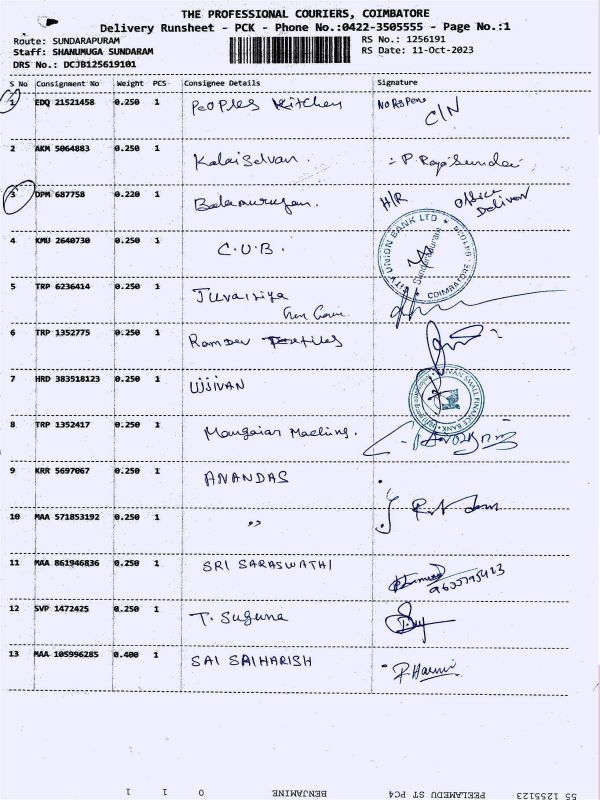 THE PROFESSIONAL COURIERS, COIMBATORE
Delivery Runsheet - PCK - Phone No.:0422-3505555 - Page No.:1
Route: SUNDARAPURAM RS No.: 1256191
Staff: SHANUMUGA SUNDARAM RS Date: 11-Oct-2023
DRS No.: DCJB125619101
S No Consignment No Weight PCS Consignee Details Signature
1 EDQ 21521458 0.250 1 Peoples Kitchen
C/N
2 AKM 5064883 0.250 1 Kalaiselvan.
3 DPM 687758 0.220 1 Balamurugan. H/R Office
4 KMU 2640730 0.250 1 C.U.B. CITY UNION BANK LTD COIMBATORE
5 TRP 6236414 0.250 1
6 TRP 1352775 0.250 1 Ramdev Textiles
7 HRD 383518123 0.250 1 UJJIVAN UJJIVAN SMALL FINANCE BANK
8 TRP 1352417 0.250 1
9 KRR 5697067 0.250 1 ANANDAS
10 MAA 571853192 0.250 1 ,,
11 MAA 861946836 0.250 1 SRI SARASWATHI
12 SVP 1472425 0.250 1 T. Suguna
13 MAA 105996285 0.400 1 SAI SRIHARISH
55 1255123 PEELAMEDU ST PC4 BENJAMINE 0 1 1